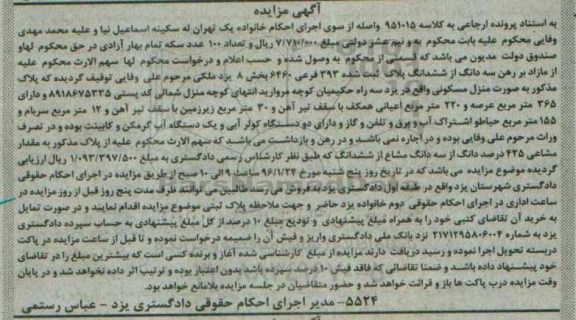 آگهی مزایده
به استناد پرونده ارجاعی به کلاسه ۹۵۱۰۱۵ واصله از سوی اجرای احکام خانواده یک تهران له سکینه اسماعیل نیا و علیه محمد مهدی
وفایی محکوم علیه بابت محکوم به و نیم عشر دولتی مبلغ ۷/۷۱۰/۰۰۰ ریال و تعداد ۱۰۰ عدد سکه تمام بهار آزادی در حق محکوم لها و
صندوق دولت مدیون می باشد که قسمتی از محکوم به وصول شده و حسب اعلام و درخواست محکوم لها سهم الارث محکوم علیه
از مازاد بر رهن سه دانگ از ششدانگ پلاک ثبت شده ۳۹۳ فرعی ۶۴۶۰ بخش ۸ یزد ملکی مرحوم علی وفایی توقیف گردیده که پلاک
مذکور به صورت منزل مسکونی واقع در یزد سه راه حکیمیان کوچه مروارید انتهای کوچه منزل شمالی کد پستی ۸۹۱۸۶۷۵۳۳۵ و دارای
۳۶۵ متر مربع عرصه و ۲۲۰ متر مربع اعیانی همکف با سقف تیر آهن و ۳۰ متر مربع زیرزمین با سقف تیر آهن و ۱۲ متر مربع سربام و
۱۵۵ متر مربع حیاط و اشتراک آب و برق و تلفن و گاز و دارای دو دستگاه کولر آبی و یک دستگاه آب گرمکن و کابینت بوده و در تصرف
وراث مرحوم علی وفایی بوده و در اجاره نمی باشد و در رهن و بازداشت می باشد که سهم الارث محکوم علیه از پلاک مذکور به مقدار
مشاعی ۴۲۵ درصد دانگ از سه دانگ مشاع از ششدانگ که طبق نظر کارشناس رسمی دادگستری به مبلغ ۱/۰۹۳/۳۹۷/۵۰۰ ریال ارزیابی
گردیده موضوع مزایده می باشد که در تاریخ روز پنج شنبه مورخ ۹۶/۱/۲۴ ساعت ۹ الی ۱۰ صبح از طریق مزایده در اجرای احکام حقوقی
دادگستری شهرستان یزد واقع در طبقه اول دادگستری یزد به فروش می رسد طالبین می توانند ظرف مدت پنج روز قبل از روز مزایده در
ساعت اداری در اجرای احکام حقوقی دوم خانواده یزد حاضر و جهت ملاحظه پلاک ثبتی موضوع مزایده اقدام نمایند و در صورت تمایل
به خرید آن تقاضای کتبی خود را به همراه مبلغ پیشنهادی و تودیع مبلغ ۱۰ درصد از کل مبلغ پیشنهادی به حساب سپرده دادگستری
یزد به شماره ۲۱۷۱۲۹۵۸۰۶۰۰۴ نزد بانک ملی دادگستری واریز و فیش آن را ضمیمه درخواست نموده و تا قبل از ساعت مزایده در پاکت
دربسته تحویل اجرا نموده و رسید دریافت دارند مزایده از مبلغ کارشناسی شده آغاز و برنده کسی است که بیشترین مبلغ را در تقاضای
خود پیشنهاد داده باشد و ضمنا تقاضائی که فاقد فیش ۱۰ درصد سپرده باشد بدون اعتبار بوده و ترتیب اثر داده نخواهد شد و در پایان
وقت مزایده درب پاکت ها باز و قرائت خواهد شد و حضور متقاضیان در جلسه مزایده بلامانع خواهد بود.
۵۵۲۴- مدیر اجرای احکام حقوقی دادگستری یزد - عباس رستمی